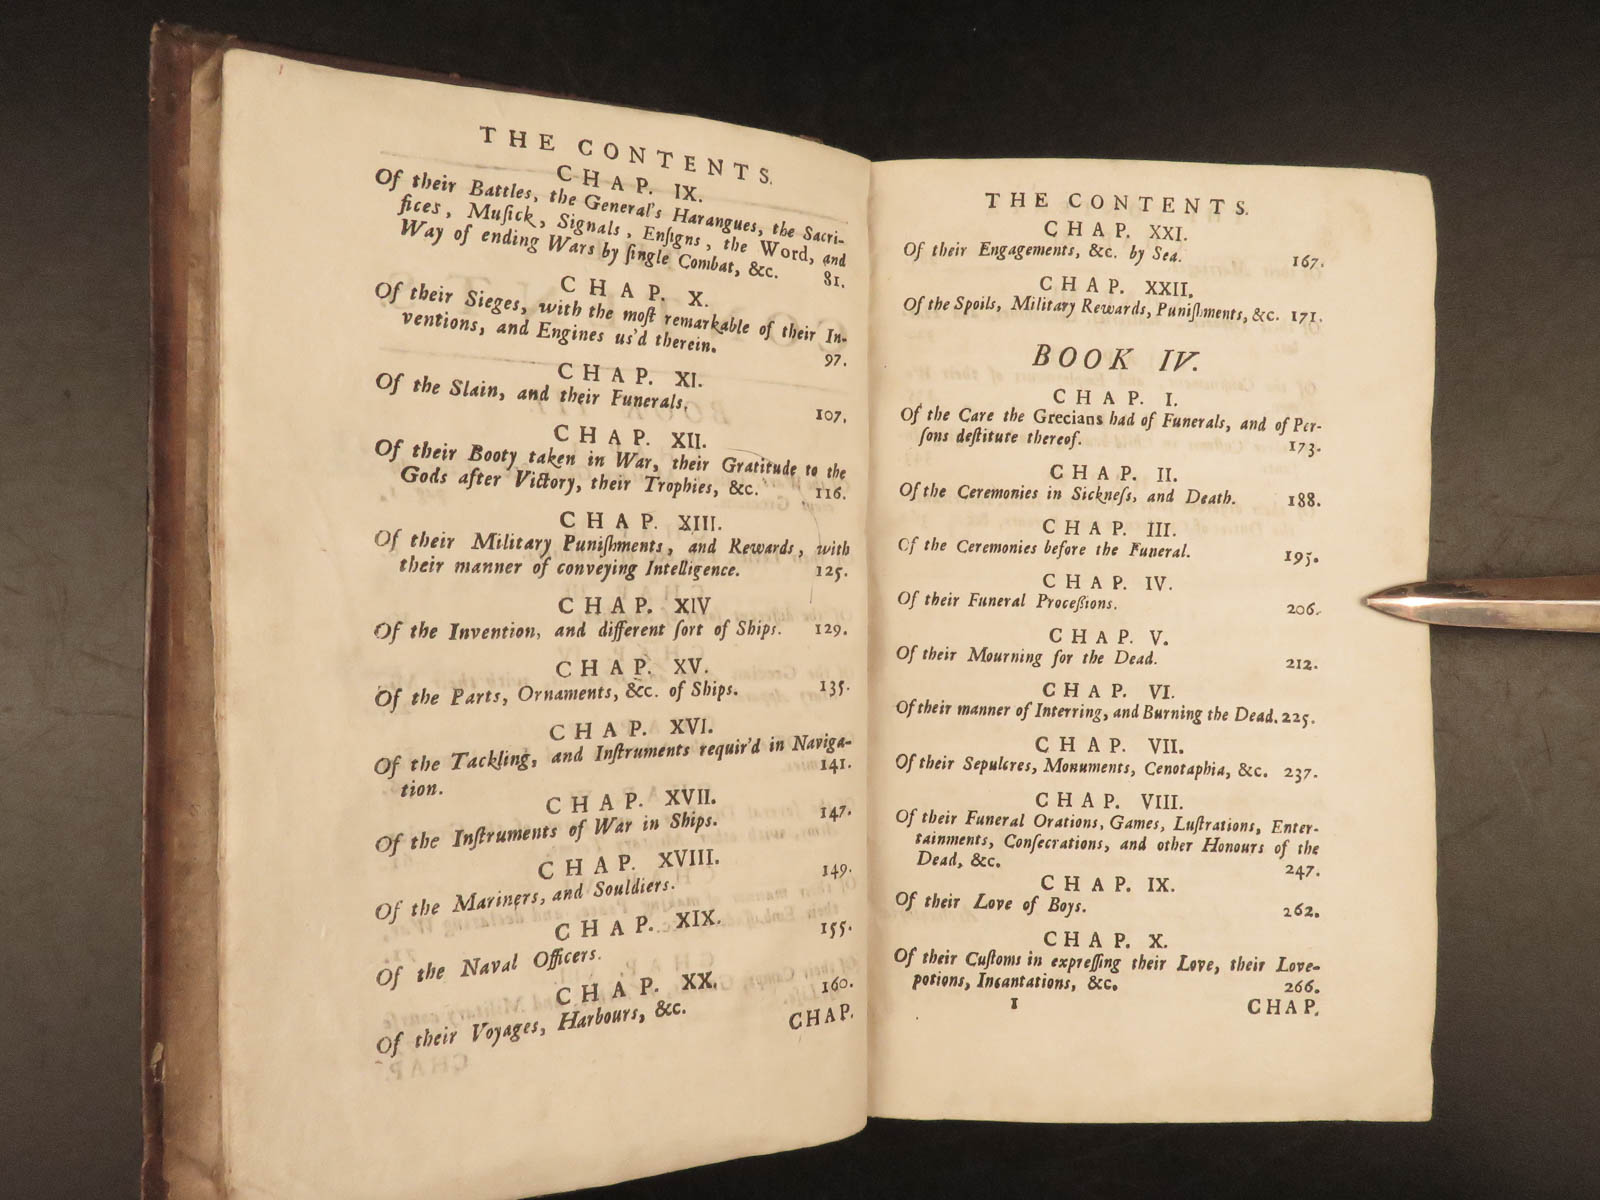 THE CONTENTS.
CHAP. IX.
Of their Battles, the General's Harangues, the Sacri-
fices, Muſick, Signals, Enſigns, the Word, and
Way of ending Wars by ſingle Combat, &c. 81.
CHAP. X.
Of their Sieges, with the moſt remarkable of their In-
ventions, and Engines us'd therein. 97.
CHAP. XI.
Of the Slain, and their Funerals. 107.
CHAP. XII.
Of their Booty taken in War, their Gratitude to the
Gods after Victory, their Trophies, &c. 116.
CHAP. XIII.
Of their Military Puniſhments, and Rewards, with
their manner of conveying Intelligence. 125.
CHAP. XIV
Of the Invention, and different ſort of Ships. 129.
CHAP. XV.
Of the Parts, Ornaments, &c. of Ships. 135.
CHAP. XVI.
Of the Tackling, and Inſtruments requir'd in Naviga-
tion. 141.
CHAP. XVII.
Of the Inſtruments of War in Ships. 147.
CHAP. XVIII.
Of the Mariners, and Souldiers. 149.
CHAP. XIX.
Of the Naval Officers. 155.
CHAP. XX.
Of their Voyages, Harbours, &c. 160.
CHAP.
THE CONTENTS.
CHAP. XXI.
Of their Engagements, &c. by Sea. 167.
CHAP. XXII.
Of the Spoils, Military Rewards, Puniſhments, &c. 171.
BOOK IV.
CHAP. I.
Of the Care the Grecians had of Funerals, and of Per-
ſons deſtitute thereof. 173.
CHAP. II.
Of the Ceremonies in Sickneſs, and Death. 188.
CHAP. III.
Of the Ceremonies before the Funeral. 195.
CHAP. IV.
Of their Funeral Proceſſions. 206.
CHAP. V.
Of their Mourning for the Dead. 212.
CHAP. VI.
Of their manner of Interring, and Burning the Dead. 225.
CHAP. VII.
Of their Sepulcres, Monuments, Cenotaphia, &c. 237.
CHAP. VIII.
Of their Funeral Orations, Games, Luſtrations, Enter-
tainments, Conſecrations, and other Honours of the
Dead, &c. 247.
CHAP. IX.
Of their Love of Boys. 262.
CHAP. X.
Of their Cuſtoms in expreſſing their Love, their Love-
potions, Incantations, &c. 266.
I CHAP.